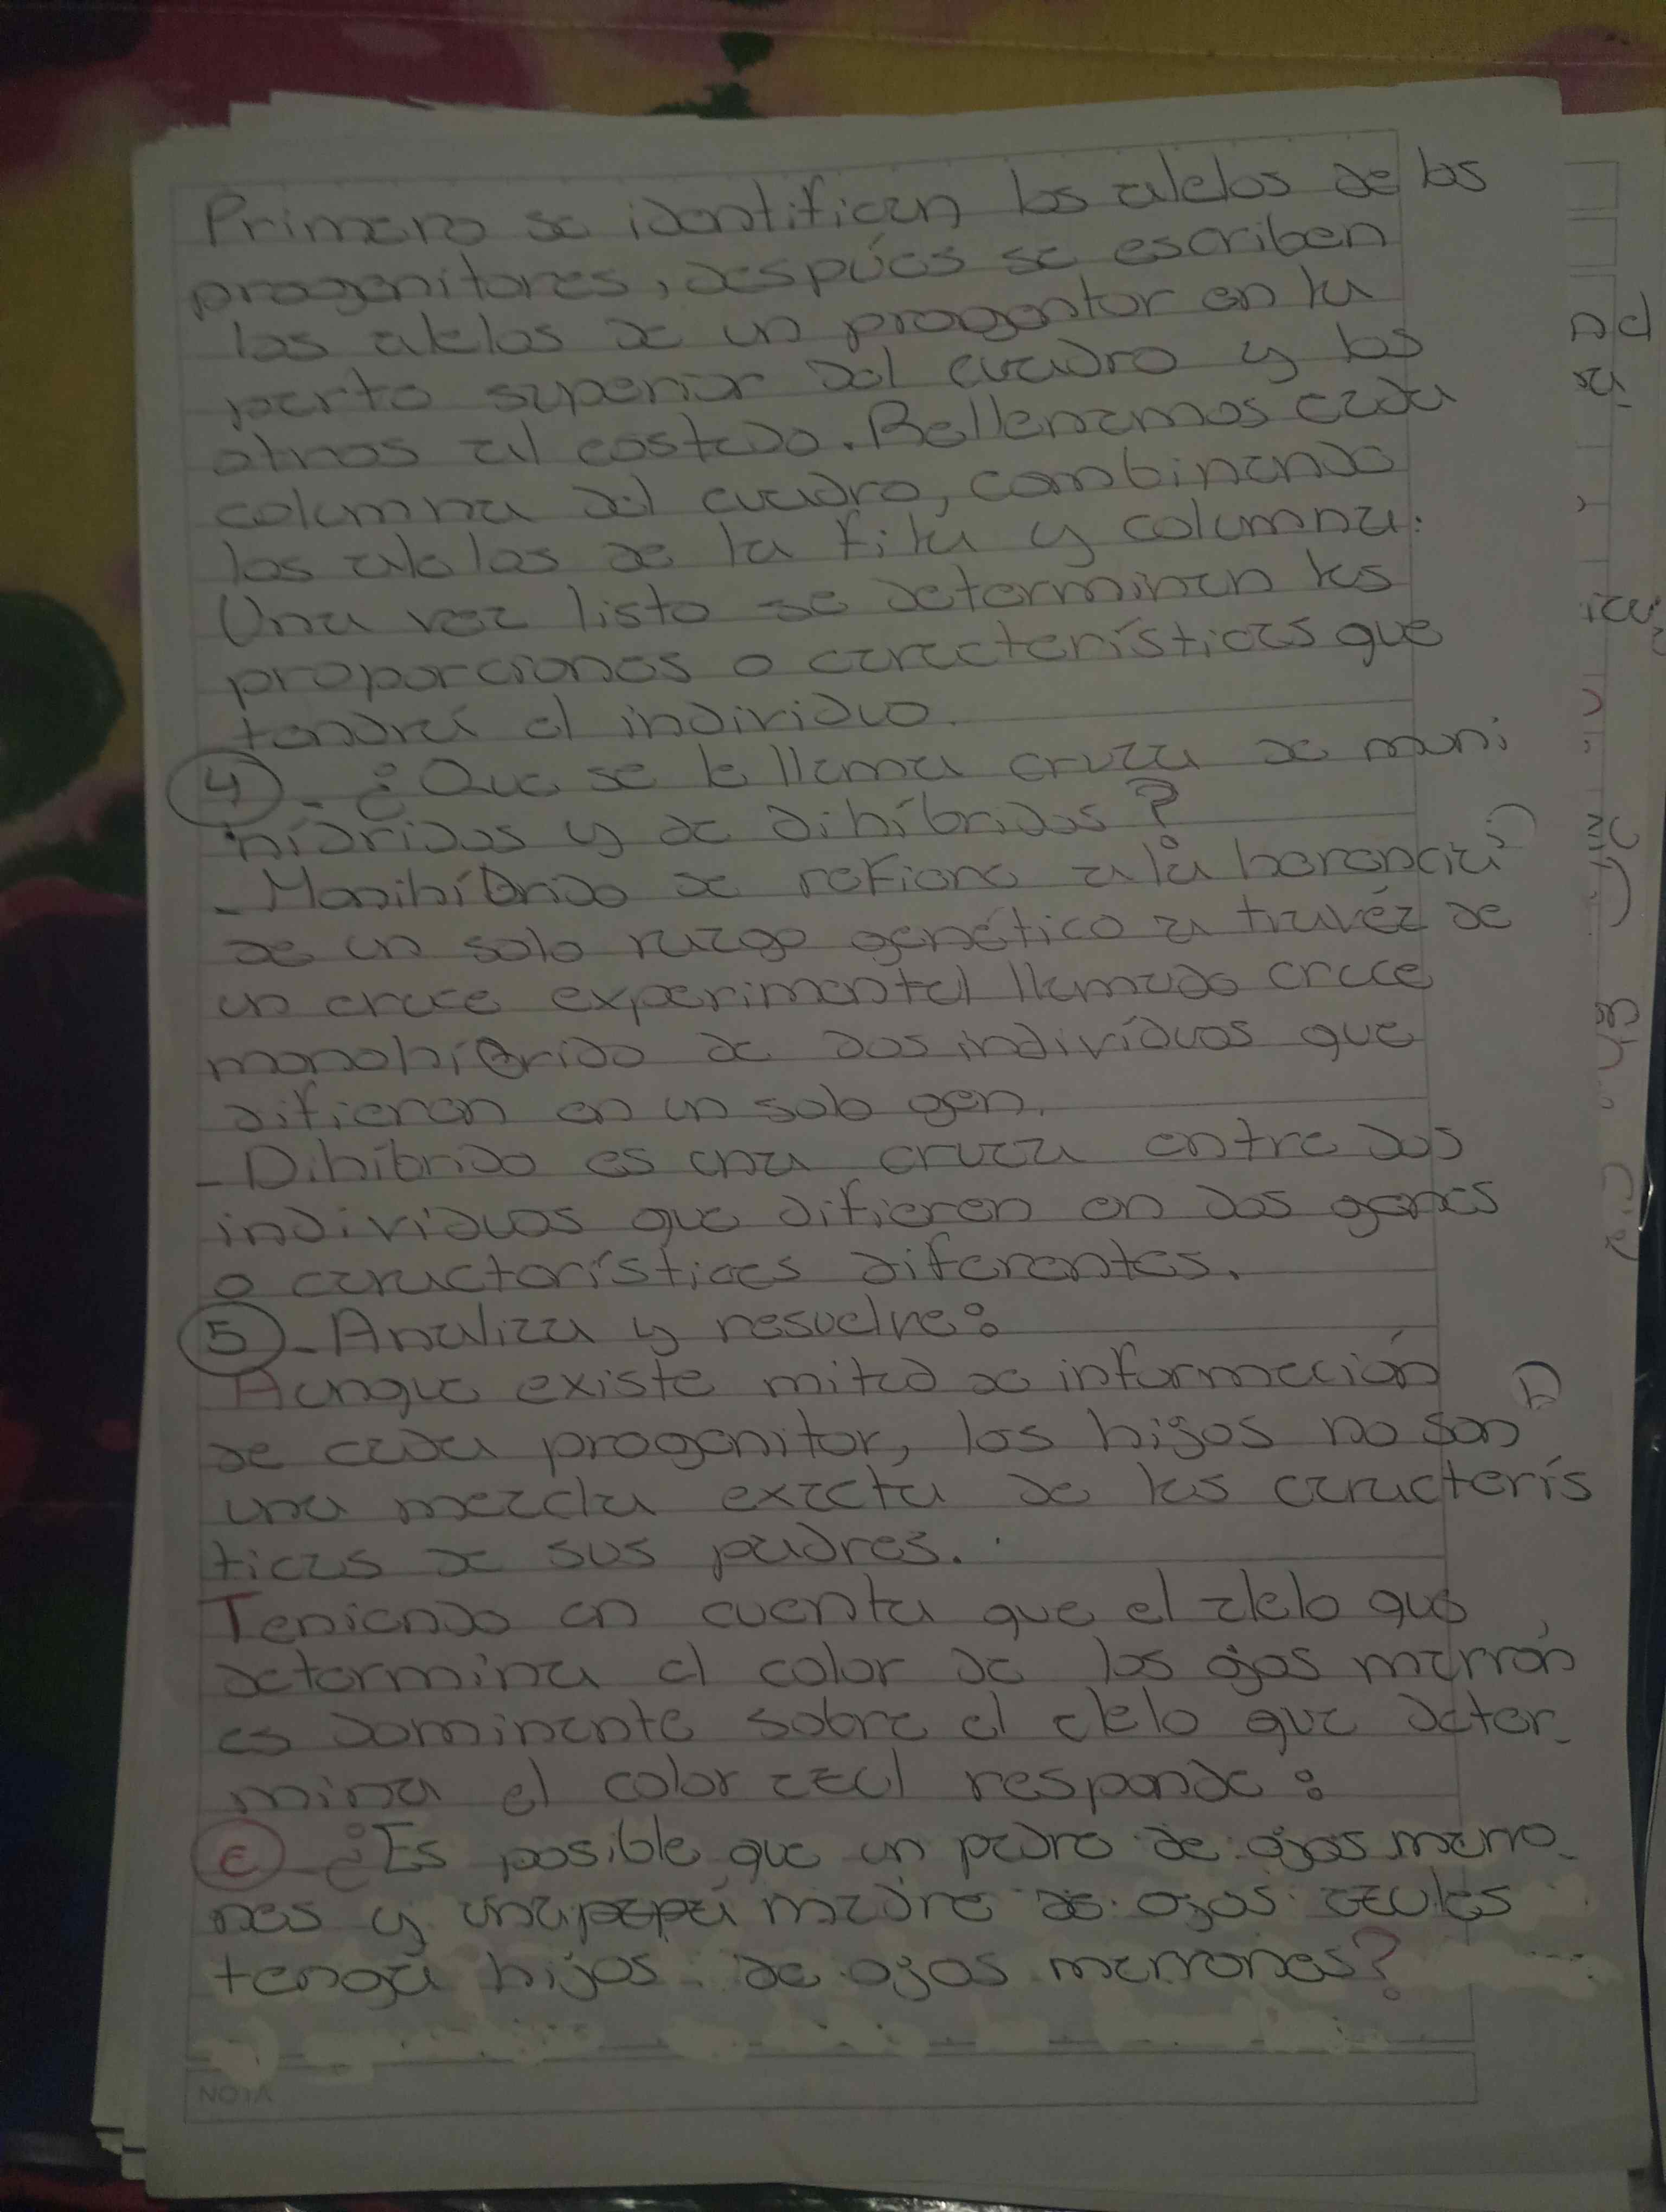 Primero se identifican los alelos de los
progenitores, despúes se escriben
los alelos de un progentor en la
parte superior del cuadro y los
otros al costado. Rellenamos cada
columna del cuadro, combinando
los alelos de la fila y columna.
Una vez listo se determinan las
proporciones o características que
tendrá el individuo.
4 - ¿Que se le llama cruza de moni
híbridos y de dihíbridos?
- Monihíbrido se refiere a la herencia
de un solo razgo genético a travéz de
un cruce experimental llamado cruce
monohíbrido de dos individuos que
difieren en un solo gen.
- Dihíbrido es una cruza entre dos
individuos que difieren en dos genes
o características diferentes.
5 - Analiza y resuelve:
Aunque existe mitad de información
de cada progenitor, los hijos no son
una mezcla exacta de las caracterís
ticas de sus padres.
Teniendo en cuenta que el alelo que
determina el color de los ojos marrón
es dominante sobre el alelo que deter-
mina el color azul responde:
- ¿Es posible que un padre de ojos marro-
nes y una madre de ojos azules
tenga hijos de ojos marrones?
NOTA